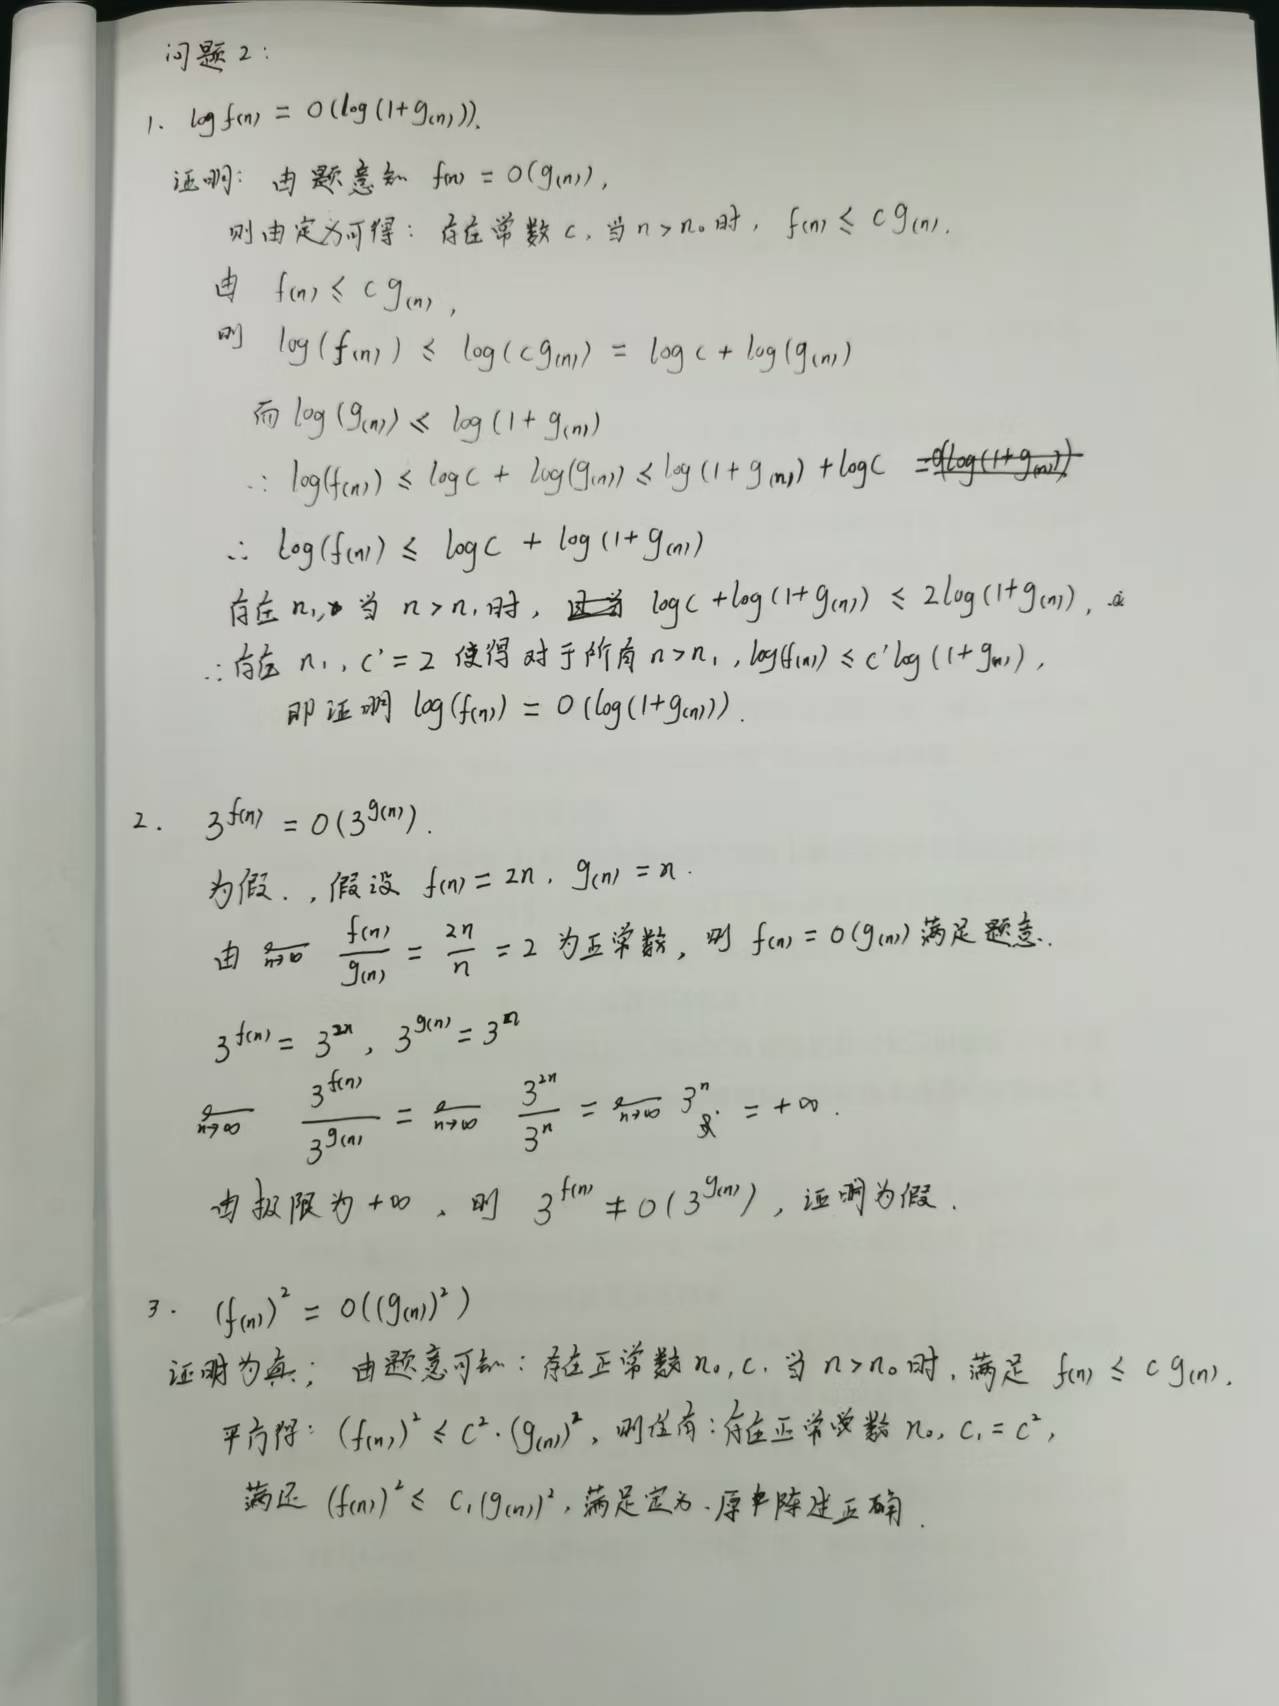 问题2:
1. log f(n) = O(log(1+g(n))).
证明: 由题意知 f(n) = O(g(n)),
则由定义可得: 存在常数 c, 当 n>n₀时, f(n) ≤ cg(n).
由 f(n) ≤ cg(n),
则 log(f(n)) ≤ log(cg(n)) = logc + log(g(n))
而 log(g(n)) ≤ log(1+g(n))
∴ log(f(n)) ≤ logc + log(g(n)) ≤ log(1+g(n)) + logc
∴ log(f(n)) ≤ logc + log(1+g(n))
存在 n₁, 当 n>n₁时, logc+log(1+g(n)) ≤ 2log(1+g(n)),
∴存在 n₁, c'=2 使得对于所有 n>n₁, log(f(n)) ≤ c'log(1+g(n)),
即证明 log(f(n)) = O(log(1+g(n))).
2. 3^f(n) = O(3^g(n)).
为假., 假设 f(n) = 2n, g(n) = n.
由 lim n→∞ f(n)/g(n) = 2n/n = 2 为正常数, 则 f(n) = O(g(n)) 满足题意.
3^f(n) = 3^2n, 3^g(n) = 3^n
lim n→∞ 3^f(n)/3^g(n) = lim n→∞ 3^2n/3^n = lim n→∞ 3^n = +∞.
由极限为+∞, 则 3^f(n) ≠ O(3^g(n)), 证明为假.
3. (f(n))² = O((g(n))²)
证明为真; 由题意可知: 存在正常数 n₀, c, 当 n>n₀时, 满足 f(n) ≤ cg(n).
平方得: (f(n))² ≤ c²·(g(n))², 则 存在正常数 n₀, c₁=c²,
满足 (f(n))² ≤ c₁(g(n))², 满足定义. 原 陈述正确.